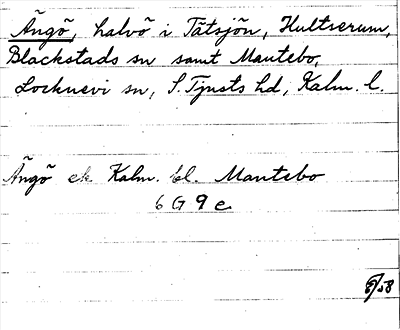 Ängö, halvö i Tätsjön, Hultserum,
Blackstads sn samt Mantebo,
Locknevi sn, S. Tjusts hd, Kalm. l.
Ängö ek Kalm. bl. Mantebo
6 G 9 e